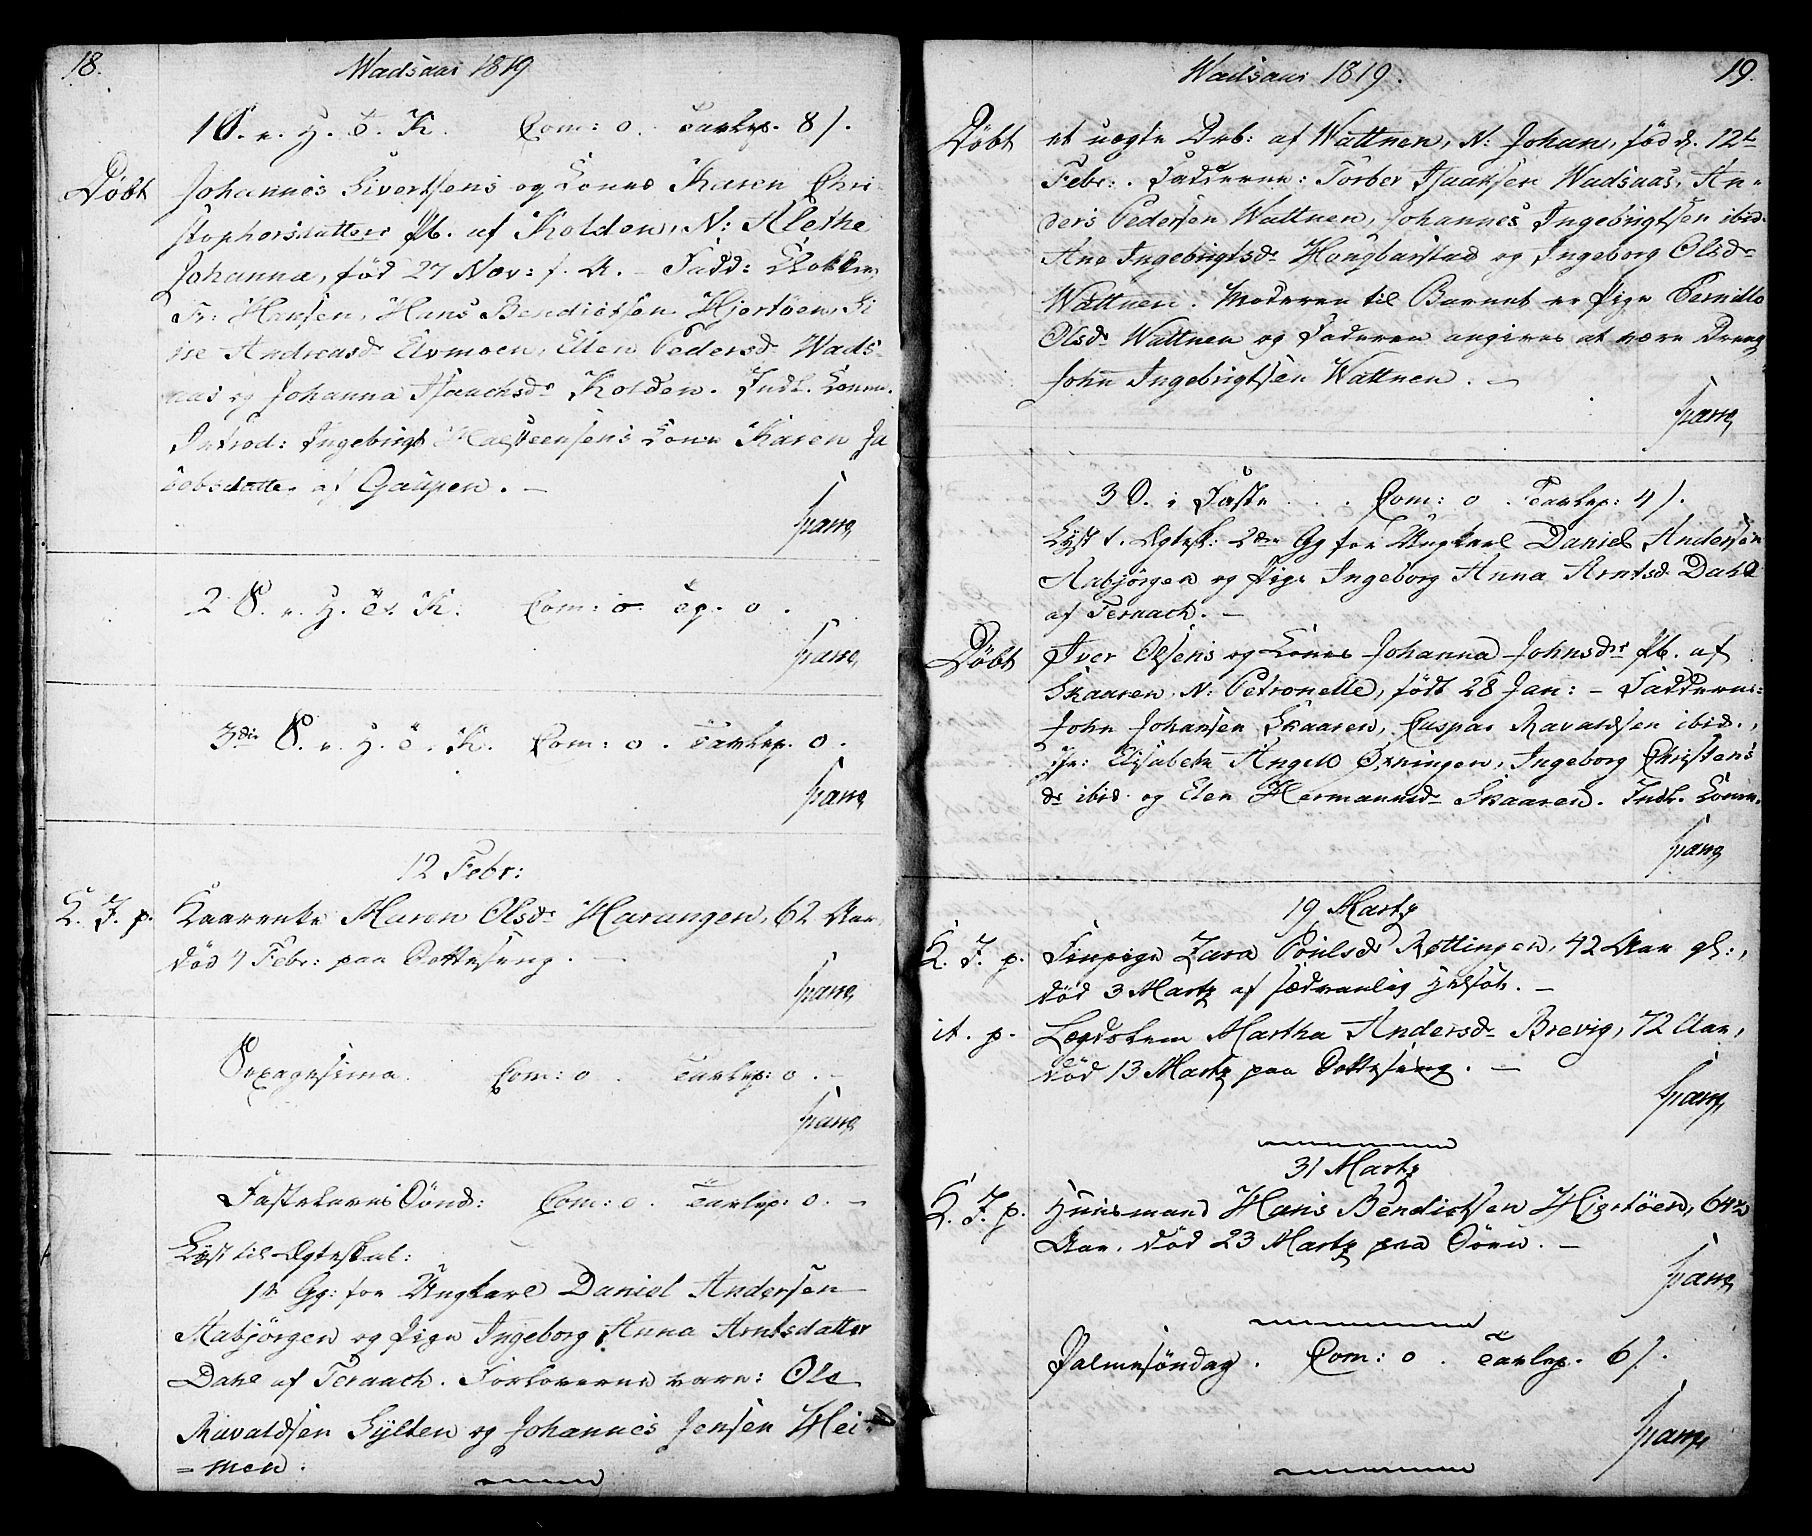 18.
Wadsaas 1819
1 S. e. H. 3 K. Com: 0. Tavlep. 8 /.
Døbt
Johannes Sivertsens og Kones Karen Chri-
stophersdatters Pb. af Kolden, N: Alethe
Johanna, fød 27 Nov: f. A. – Fadd: Klokker
Fr: Hansen, Hans Bendictsen Hjortøen, Si
ne Andreasd. Elvmoen, Ellen Pedersd. Wads-
aas og Johanna Isaachsdr Kolden. Indl. Konen.
Introd: Ingebrigt Halsteensens Kone Karen Ja
cobsdatter af Gaupen. –
Spang
2 S. e. H. 3 K. Com: 0 Tp. 0.
Spang
3die S. e. H. 3 K. Com: 0. Tavlep. 0.
Spang
12 Febr:
K. J. p.
Kaarenke Maren Olsdr Harangen, 62 Aar,
død 4 Febr: paa Sotteseng. –
Spang
Sexagesima. Com: 0. Tavlep: 0. –
Spang
Fastelavns Sønd: Com: 0. Tavlep: 0. –
Lyst til Ægteskab:
1ste Gg: for Ungkarl Daniel Andersen
Aabjørgen og Pige Ingeborg Anna Arntsdatter
Dahl af Teraach. Forloverne vare: Ole
Ravaldsen Sylten og Johannes Jensen Hei-
=men.
Wadsaas 1819.
19.
Døbt
et uægte Drb: af Wattnen, N: Johan, fød d. 12te
Febr:. Fadderne: Torber Isaaksen Wadsaas, An-
ders Pedersen Wattnen, Johannes Ingebrigtsen ibid.
Ane Ingebrigtsdr Hongbarstad og Ingeborg Olsdr
Wattnen. Moderen til Barnet er Pige Pernille
Olsdr Wattnen og Faderen angives at være Dreng
John Ingebrigtsen Wattnen. –
Spang
3 S. i Faste. Com: 0. Tavlep: 4 /.
Lyst t. Ægtesk: 2den Gg for Ungkarl Daniel Andersen
Aabjørgen og Pige Ingeborg Anna Arntsd. Dahl
af Teraach. –
Døbt
Iver Olsens og Kones Johanna Johnsdrs Pb. af
Skaaren, N: Petronelle, født 28 Jan: – Fadderne:
John Johansen Skaaren, Caspar Ravaldsen ibid.,
Elisabeth Angell Øxningen, Ingeborg Christens
dr ibid. og Elen Hermansdr Skaaren. Indl. Konen.
Spang
19 Martz
K. J. p.
Finpige Zara Poulsdr Røttingen, 42 Aar gl:,
død 3 Martz af sædvanlig
it. p.
Lægdslem Martha Andersdr Brevig, 72 Aar,
død 13 Martz paa Sotteseng. –
Spang
31 Martz
K. J. p.
Huusmand Hans Bendictsen Hjortøen, 64½
Aar, død 23 Martz paa Søen. –
Spang
Palmesøndag. Com: 0. Tavlep. 6 /.
Spang